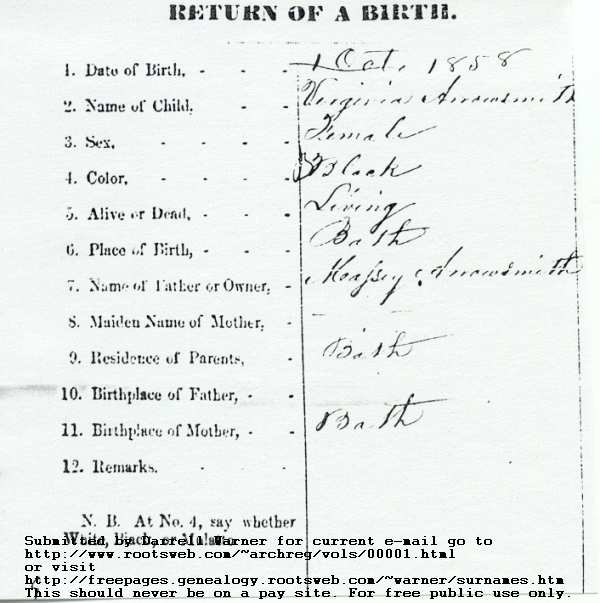 RETURN OF A BIRTH.
1. Date of Birth, - - - 1 Oct. 1858
2. Name of Child, - - Virginia Arrowsmith
3. Sex, - - - - Female
4. Color, - - - - Black
5. Alive or Dead, - - - Living
6. Place of Birth, - - - Bath
7. Name of Father or Owner, - Massey Arrowsmith
8. Maiden Name of Mother, -
9. Residence of Parents, - Bath
10. Birthplace of Father, - -
11. Birthplace of Mother, - - Bath
12. Remarks. - - -
N. B. At No. 4, say whether
White, Black, or Mulatto.
Submitted by Darrell Warner for current e-mail go to
http://www.rootsweb.com/~archreg/vols/00001.html
or visit
http://freepages.genealogy.rootsweb.com/~warner/surnames.htm
This should never be on a pay site. For free public use only.